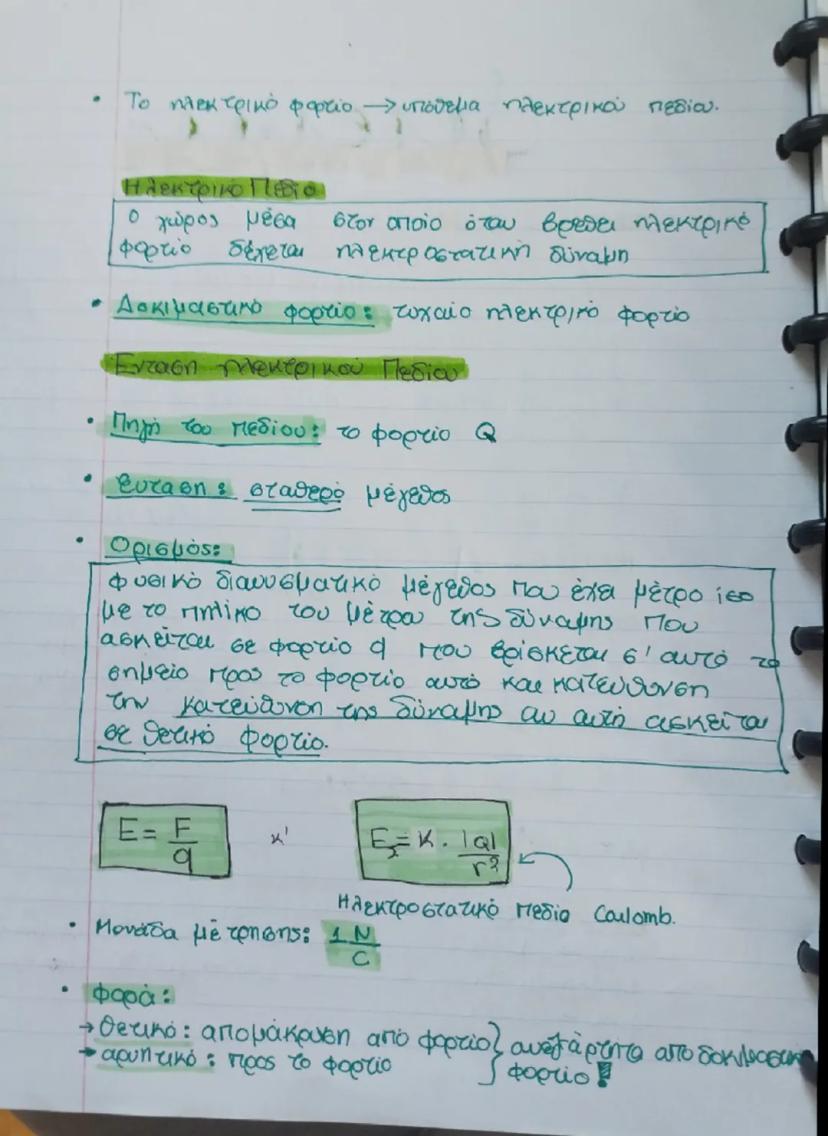 • Το ηλεκτρικό φορτίο → υπόθεμα ηλεκτρικού πεδίου.
Ηλεκτρικό Πεδίο
Ο χώρος μέσα στον οποίο όταν βρεθεί ηλεκτρικό
φορτίο δέχεται ηλεκτροστατική δύναμη
• Δοκιμαστικό φορτίο: τυχαίο ηλεκτρικό φορτίο
Ένταση ηλεκτρικού Πεδίου
• Πηγή του πεδίου: το φορτίο Q
• ένταση: σταθερό μέγεθος
• Ορισμός:
Φυσικό διανυσματικό μέγεθος που έχει μέτρο ίσο
με το πηλίκο του μέτρου της δύναμης που
ασκείται σε φορτίο q που βρίσκεται σ' αυτό το
σημείο προς το φορτίο αυτό και κατεύθυνση
την κατεύθυνση της δύναμης αν αυτή ασκείται
σε θετικό φορτίο.
E = F/q κ' E = K · |Q|/r²
Ηλεκτροστατικό πεδίο Coulomb.
• Μονάδα μέτρησης: 1 N/C
• Φορά:
→ θετικό: απομάκρυνση από φορτίο } ανεξάρτητα από δοκιμαστικό
→ αρνητικό: προς το φορτίο } φορτίο!